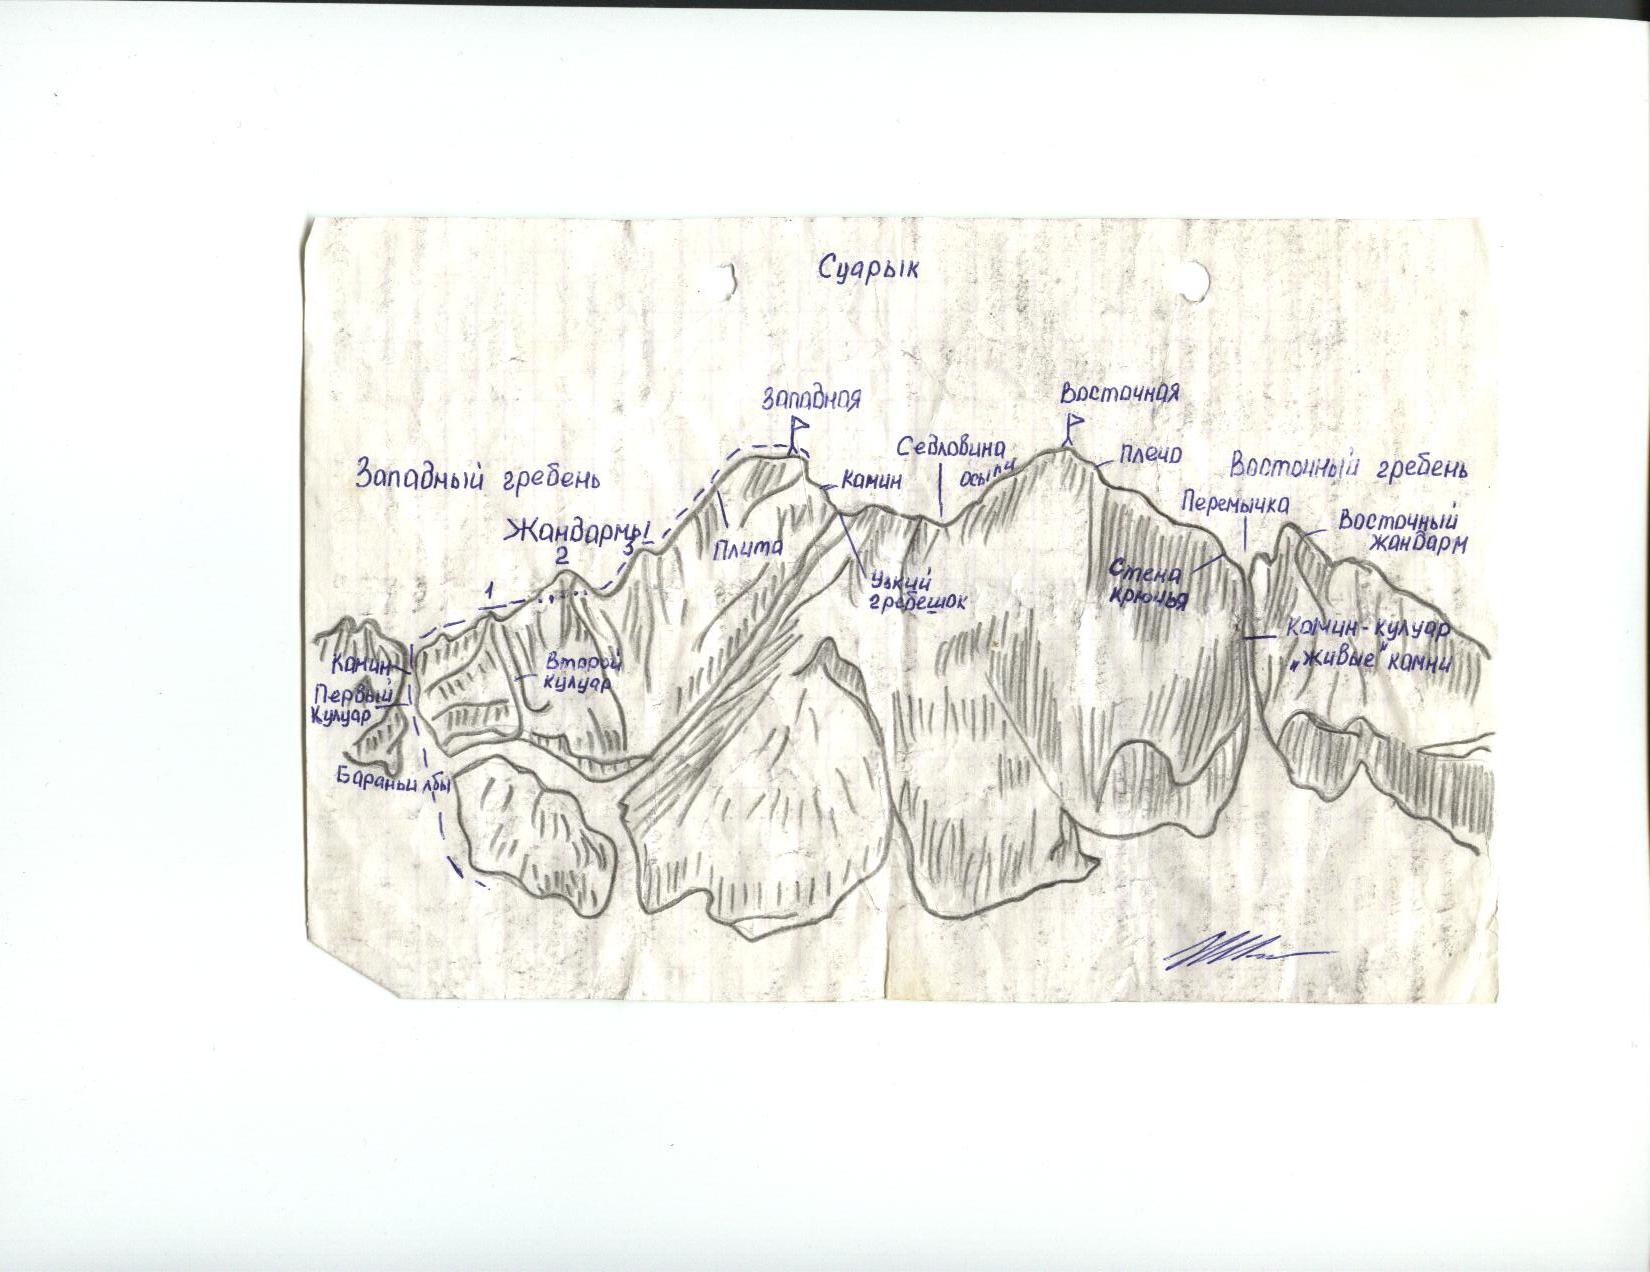 Суарык
Западная
Восточная
Седловина
осыпи
Плечо
Западный гребень
Восточный гребень
Камин
Перемычка
Жандармы
1
2
3
Плита
Восточный
жандарм
Узкий
гребешок
Стена
крючья
Камин-кулуар
„Живые" камни
Камин
Первый
Кулуар
Второй
кулуар
Бараньи лбы